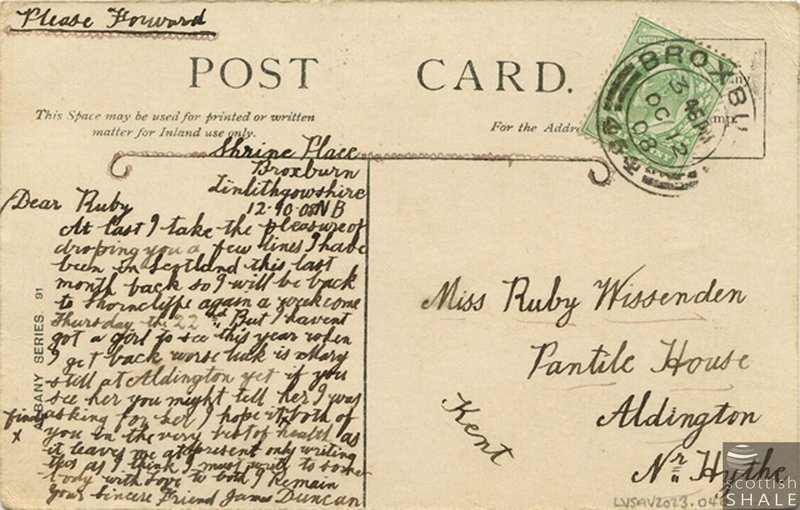 Please Forward
POST CARD.
This Space may be used for printed or written
matter for Inland use only.
For the Addre
BROXBU
3 45 PM
OC 12
08
Shrine Place
Broxburn
Linlithgowshire
12-10-08 NB
Dear Ruby
At last I take the pleasure of
droping you a few lines I have
been in Scotland this last
month back so I will be back
to Shorncliffe again a week come
Thursday the 22nd But I havent
got a girl to see this year when
I get back worse luck is Mary
still at Aldington yet if you
see her you might tell her I was
asking for her I hope it both of
finds
x
you in the very best of health as
it leaves me at present only writing
this as I think I must write to some
body with love to both I Remain
your sincere Friend James Duncan
ALBANY SERIES 91
Miss Ruby Wissenden
Pantile House
Aldington
Nr Hythe
Kent
LVSAV2023.04
scottish
SHALE